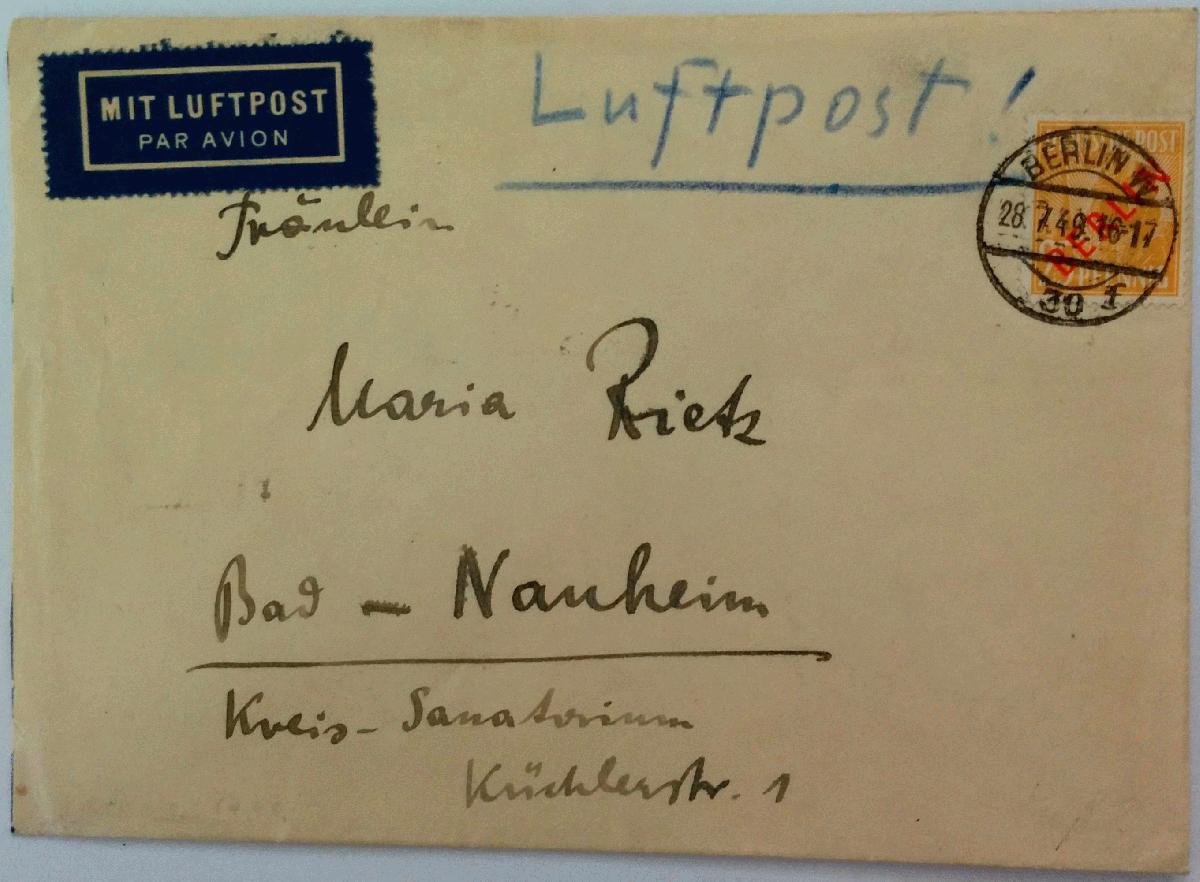 MIT LUFTPOST
PAR AVION
Luftpost!
BERLIN W
28.7.49.16-17
30
BERLIN
POST
Fräulein
Maria Rietz
Bad - Nauheim
Kreis-Sanatorium
Küchlerstr. 1